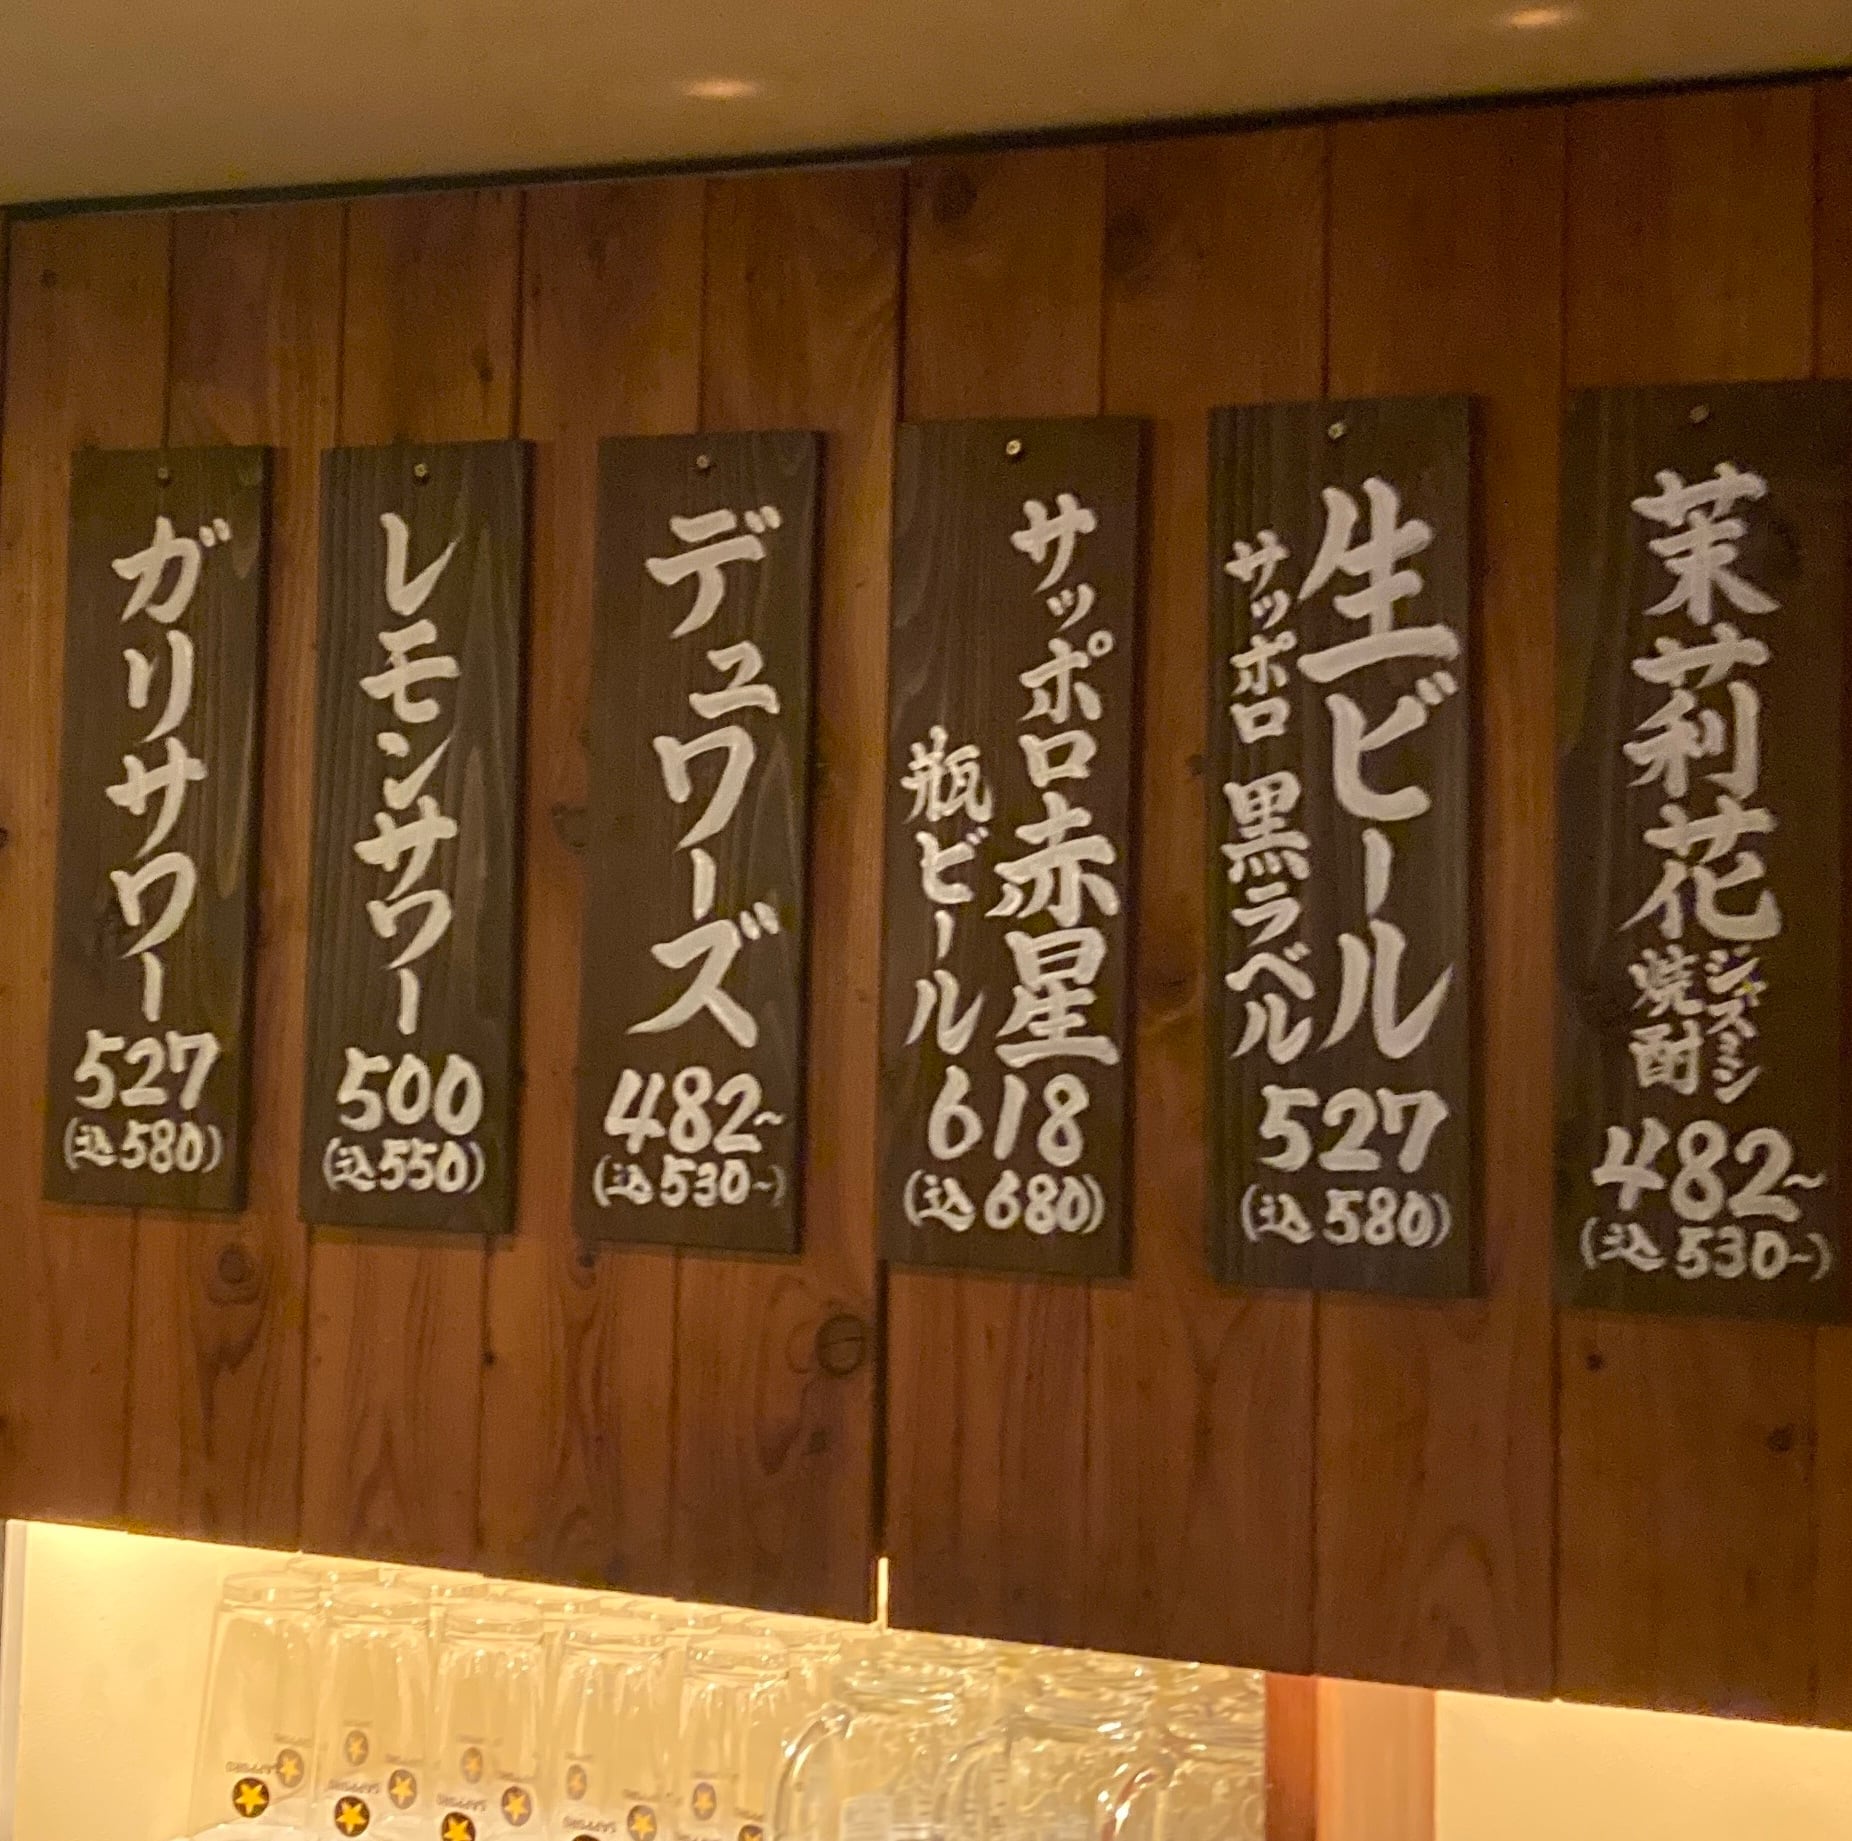 茉莉花
ジャスミン
焼酎
482~
(込530~)
生ビール
サッポロ 黒ラベル
527
(込580)
サッポロ赤星
瓶ビール
618
(込680)
デュワーズ
482~
(込530~)
レモンサワー
500
(込550)
ガリサワー
527
(込580)
SAPPORO
SAPPORO
SAPPORO
SAPPORO